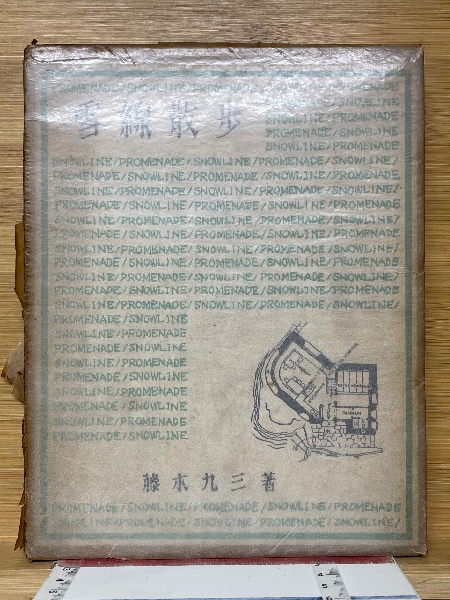 PROMENADE/SNOWLINE/PROMENADE/SNOWLINE
雪線散歩
PROMENADE/SNOWLINE
SNOWLINE/PROMENADE
PROMENADE/SNOWLINE
SNOWLINE/PROMENADE
SNOWLINE/PROMENADE/SNOWLINE/PROMENADE/SNOWLINE/
PROMENADE/SNOWLINE/PROMENADE/SNOWLINE/PROMENADE
SNOWLINE/PROMENADE/SNOWLINE/PROMENADE/SNOWLINE/
PROMENADE/SNOWLINE/PROMENADE/SNOWLINE/PROMENADE
SNOWLINE/PROMENADE/SNOWLINE/PROMENADE/SNOWLINE/
PROMENADE/SNOWLINE/PROMENADE/SNOWLINE/PROMENADE
SNOWLINE/PROMENADE/SNOWLINE/PROMENADE/SNOWLINE/
PROMENADE/SNOWLINE/PROMENADE/SNOWLINE/PROMENADE
SNOWLINE/PROMENADE/SNOWLINE/PROMENADE/SNOWLINE/
PROMENADE/SNOWLINE/PROMENADE/SNOWLINE/PROMENADE
SNOWLINE/PROMENADE/SNOWLINE/PROMENADE/SNOWLINE/
SNOWLINE/PROMENADE
SNOWLINE/PROMENADE
PROMENADE/SNOWLINE
SNOWLINE/PROMENADE
PROMENADE/SNOWLINE
SNOWLINE/PROMENADE
PROMENADE/SNOWLINE
SNOWLINE/PROMENADE
PROMENADE/SNOWLINE
藤木九三著
PROMENADE/SNOWLINE/PROMENADE/SNOWLINE/PROMENADE
SNOWLINE/PROMENADE/SNOWLINE/PROMENADE/SNOWLINE/